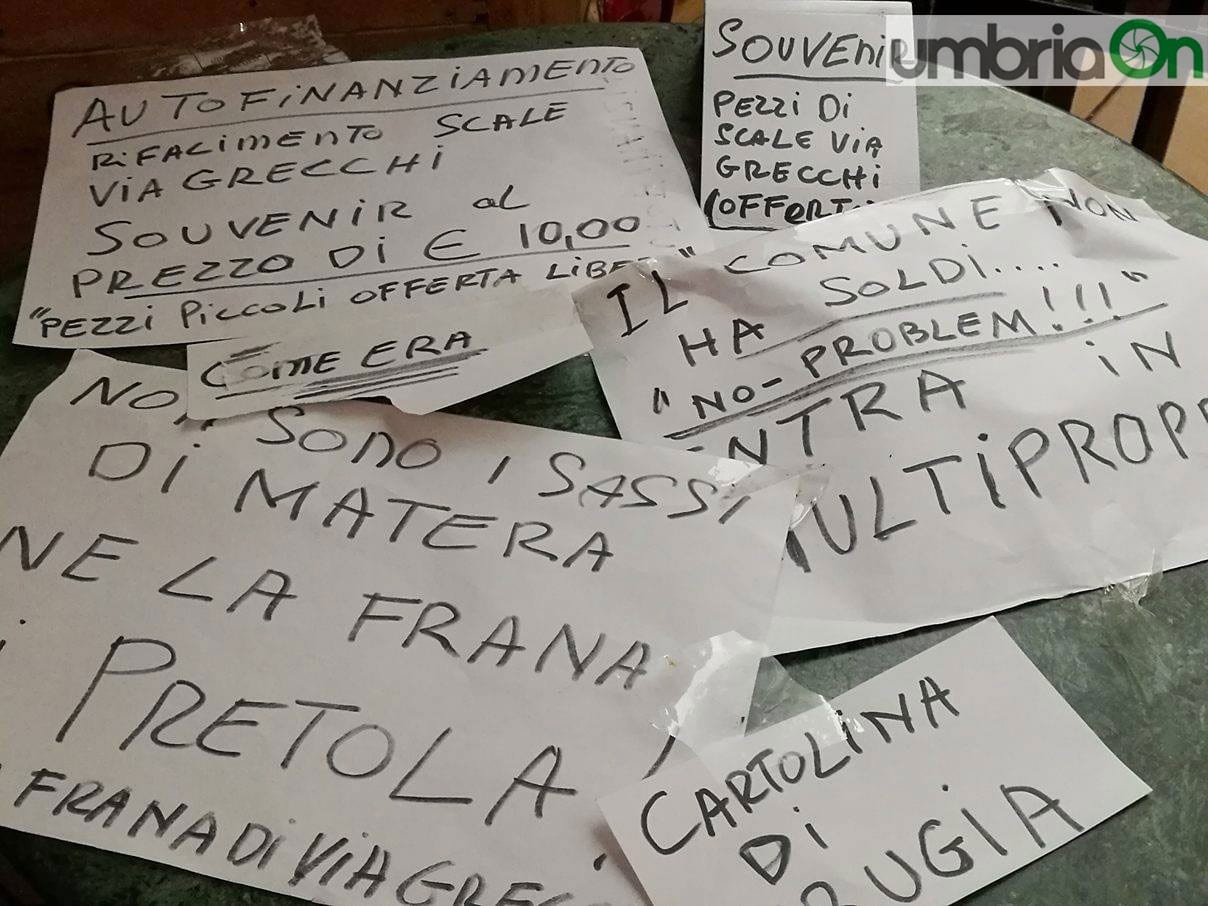 AUTOFINANZIAMENTO
RIFACIMENTO SCALE
VIA GRECCHI
SOUVENIR al
PREZZO DI € 10,00
"PEZZI PICCOLI OFFERTA LIBE
COME ERA
SOUVENIR
PEZZI DI
SCALE VIA
GRECCHI
(OFFERT
umbriaOn
"IL COMUNE NON
HA SOLDI....
"NO-PROBLEM!!!"
ENTRA IN
MULTIPROP
NON SONO I SASSI
DI MATERA
NE LA FRANA
DI PRETOLA
FRANA DI VIA GREC
CARTOLINA
DI
RUGIA